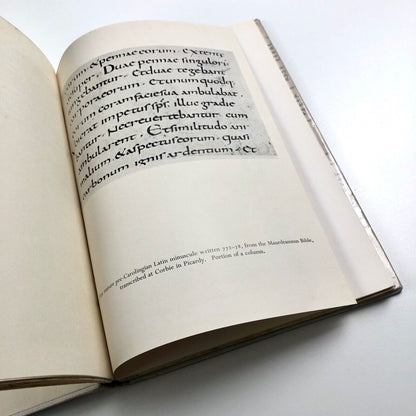 & pennae eorum. Extent
super, Duae pennae singulorū
gebantur. Et duae tegebant
orpora eorum. Et unum quodq.
coram facie sua ambulabat
erat impetus sps. illuc gradie
antur. Nec revertebantur cum
ambularent. Et similitudo ani
malium, & aspectus eorum. Quasi
carbonum ignis ardentium. Et
mature pre-Carolingian Latin minuscule written 772-78, from the Maurdramnus Bible,
transcribed at Corbie in Picardy. Portion of a column.